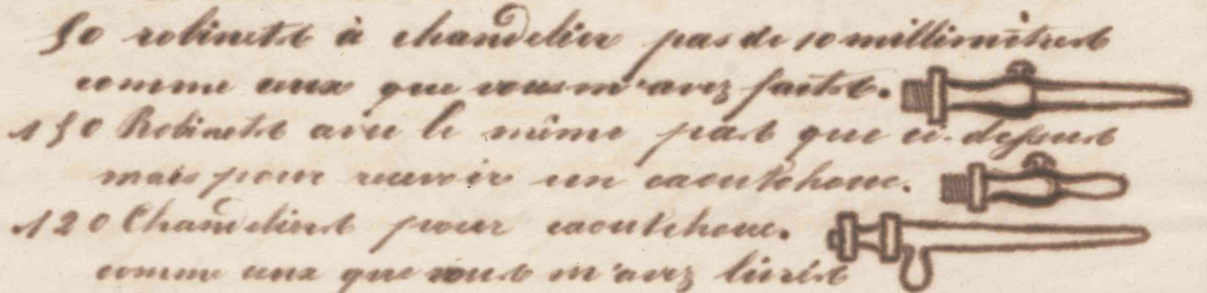 50 robinets à chandelier pas de 10 millimètres
comme ceux que vous m'avez faits.
150 Robinets avec le même pas que ci-dessus
mais pour recevoir un caoutchouc.
120 Chandeliers pour caoutchouc.
comme ceux que vous m'avez livrés